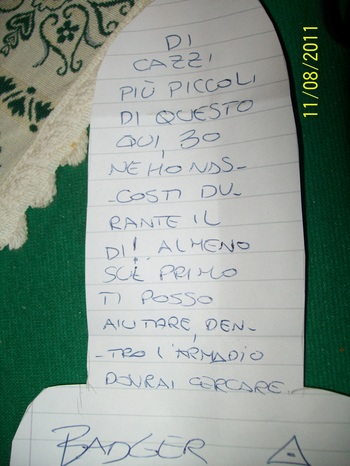 DI
CAZZI
PIÙ PICCOLI
DI QUESTO
QUI, 30
NE HO NAS-
-COSTI DU-
RANTE IL
DÌ! ALMENO
SUL PRIMO
TI POSSO
AIUTARE, DEN-
-TRO L'ARMADIO
DOVRAI CERCARE...
BADGER
11/08/2011